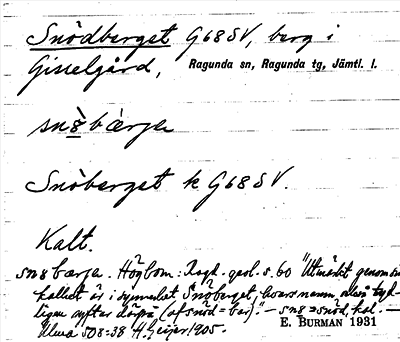 Snödberget G68SV, berg i
Gisselgård, Ragunda sn, Ragunda tg, Jämtl. l.
sn8̀bæ̀rja
Snöberget k G68SV.
Kalt.
sn8barja. Högbom: Ragd. geol. s. 60 "Utmärkt genom sin
kalhet är i synnerhet Snöberget, hvars namn also tyd-
ligen syftar därpå (af snöd = bar)." – sn8 = snöd, kal. –
508:38 H. Geijer 1905.
E. BURMAN 1931